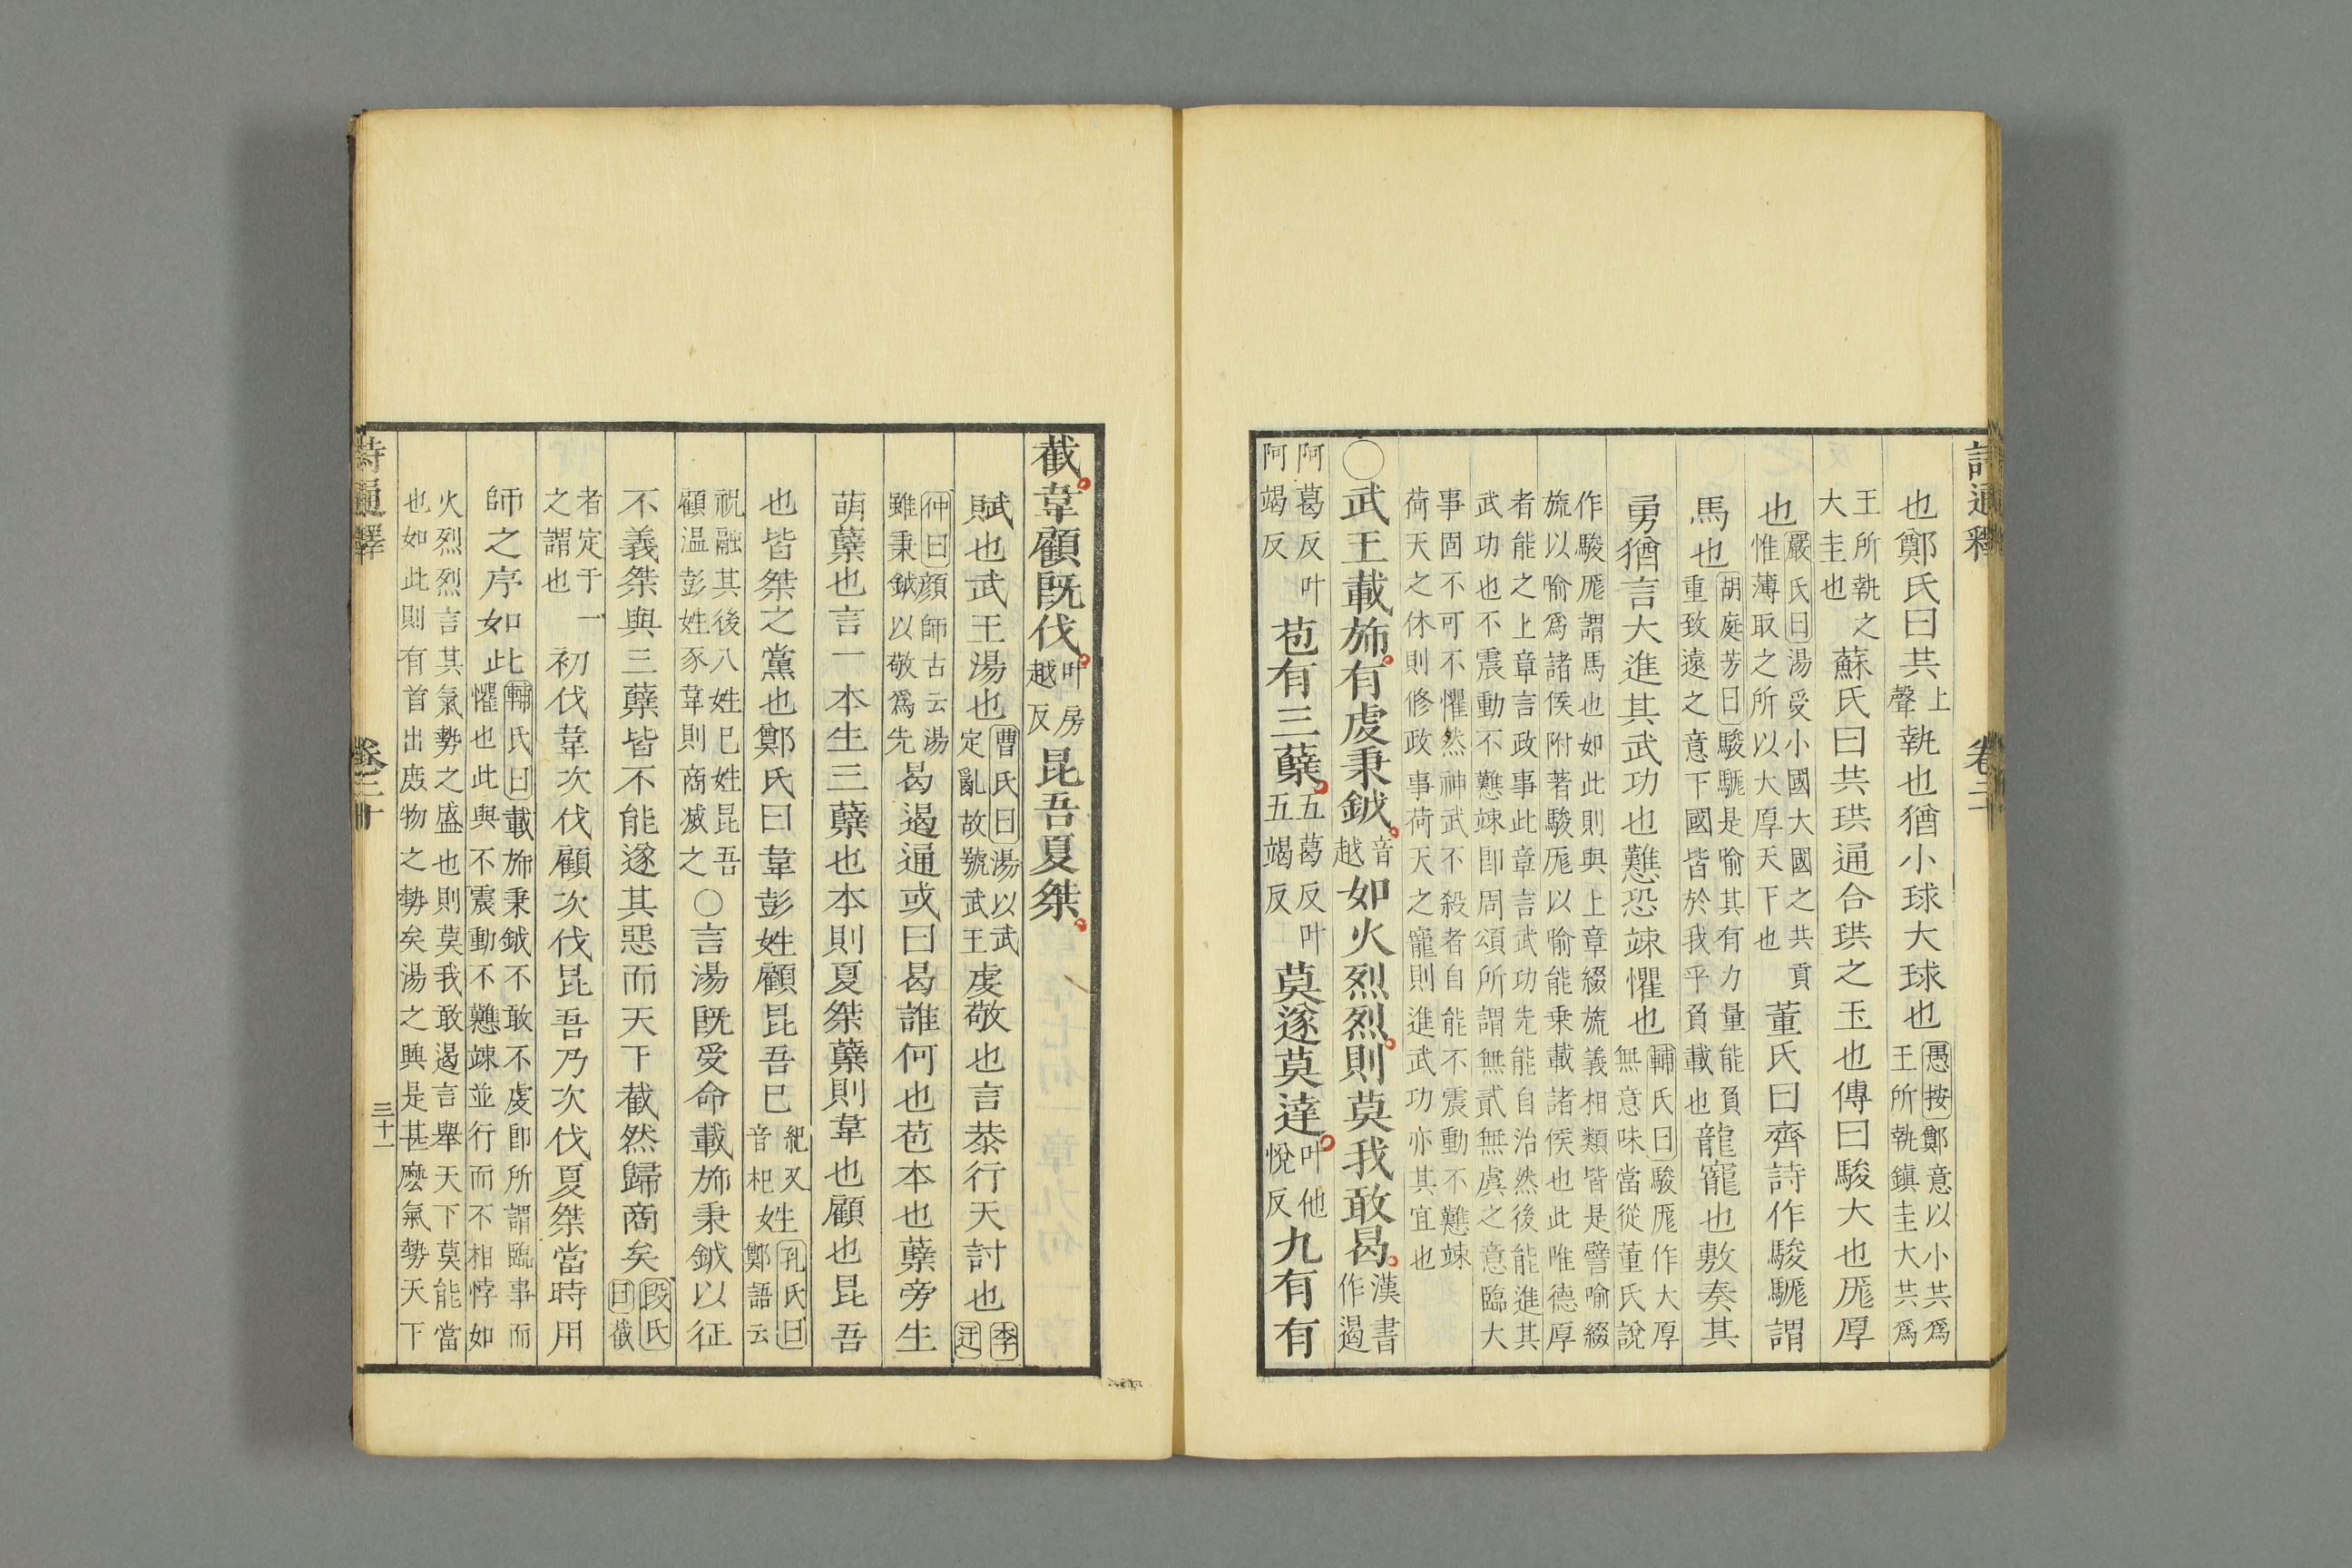 詩通釋 卷二
也鄭氏曰共上聲執也猶小球大球也愚按鄭意以小共爲王所執鎮圭大共爲
王所執之大圭也蘇氏曰共珙通合珙之玉也傳曰駿大也厖厚
也嚴氏曰湯受小國大國之共貢惟薄取之所以大厚天下也董氏曰齊詩作駿駹謂
馬也胡庭芳曰駿駹是喻其有力量能負重致遠之意下國皆於我乎負載也龍寵也敷奏其
勇猶言大進其武功也戁恐竦懼也輔氏曰駿厖作大厚無意味當從董氏說
作駿厖謂馬也如此則與上章綴旒義相類皆是譬喻綴旒以喻爲諸侯附著駿厖以喻能乗載諸侯也此唯德厚
者能之上章言政事此章言武功先能自治然後能進其武功也不震動不戁竦卽周頌所謂無貳無虞之意臨大
事固不可不懼然神武不殺者自能不震動不戁竦荷天之休則修政事荷天之寵則進武功亦其宜也
○武王載斾有虔秉鉞音越如火烈烈則莫我敢曷漢書作遏
阿葛反叶阿竭反苞有三蘖五葛反叶五竭反莫遂莫達叶他悅反九有有
截韋顧旣伐叶房越反昆吾夏桀
賦也武王湯也曹氏曰湯以武定亂故號武王虔敬也言恭行天討也李迂
仲曰顔師古云湯雖秉鉞以敬爲先曷遏通或曰曷誰何也苞本也蘖旁生
萌蘖也言一本生三蘖也本則夏桀蘖則韋也顧也昆吾
也皆桀之黨也鄭氏曰韋彭姓顧昆吾已紀又音杞姓孔氏曰鄭語云
祝融其後八姓巳姓昆吾顧温彭姓豕韋則商滅之○言湯旣受命載斾秉鉞以征
不義桀與三蘖皆不能遂其惡而天下截然歸商矣段氏曰截
者定于一之謂也初伐韋次伐顧次伐昆吾乃次伐夏桀當時用
師之序如此輔氏曰載斾秉鉞不敢不虔卽所謂臨事而懼也此與不震動不戁竦並行而不相悖如
火烈烈言其氣勢之盛也則莫我敢遏言舉天下莫能當也如此則有首出庶物之勢矣湯之興是甚麽氣勢天下
詩通釋 卷二十 三十一